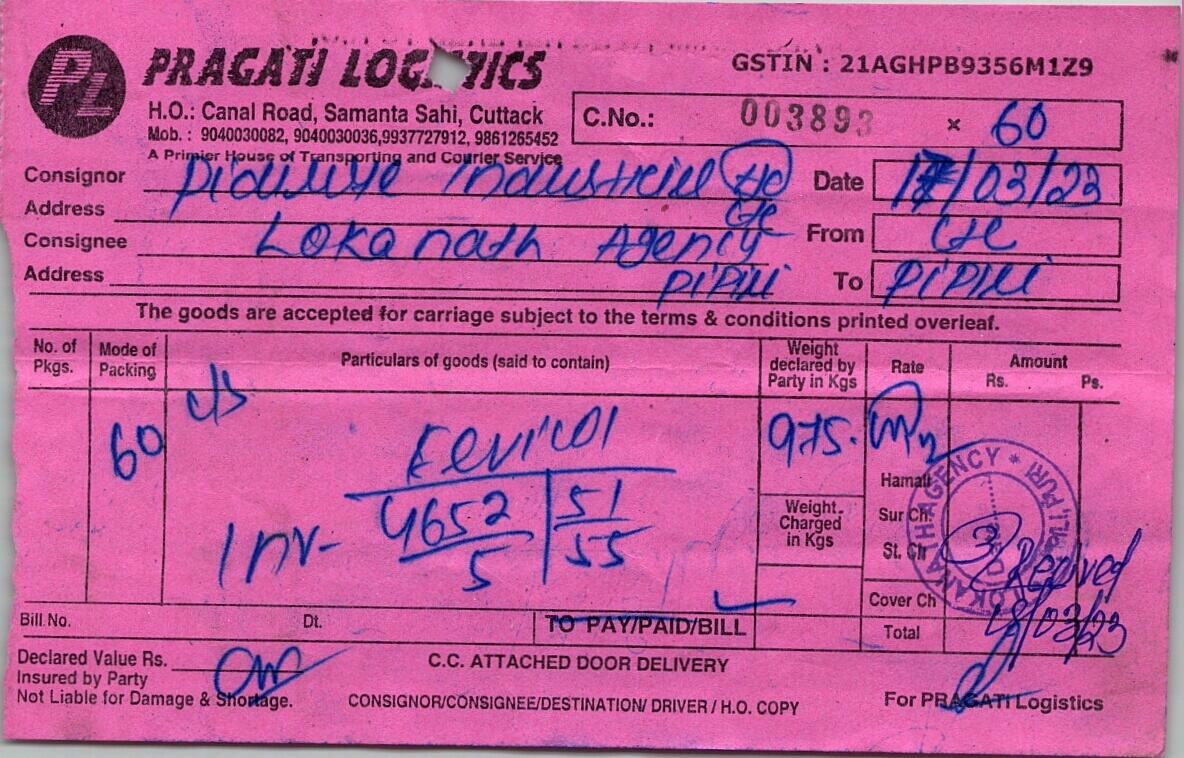 PRAGATI LOGISTICS
GSTIN : 21AGHPB9356M1Z9
H.O.: Canal Road, Samanta Sahi, Cuttack
Mob. : 9040030082, 9040030036,9937727912, 9861265452
A Primier House of Transporting and Courier Service
C.No.: 003893 x 60
Consignor Date 17/03/23
Address CTC
Consignee Lokanath Agency From CTC
Address PiPili To PiPili
The goods are accepted for carriage subject to the terms & conditions printed overleaf.
No. of Pkgs. Mode of Packing Particulars of goods (said to contain) Weight declared by Party in Kgs Rate Amount Rs. Ps.
60 Fevicol 975.
Inv- 4652/5 51/55
Weight. Charged in Kgs
Hamali
Sur Ch.
St. Ch
Cover Ch
Total
LOKANATH AGENCY * PURI
Received
18/03/23
Bill No. Dt. TO PAY/PAID/BILL
Declared Value Rs.
Insured by Party
Not Liable for Damage & Shortage.
C.C. ATTACHED DOOR DELIVERY
CONSIGNOR/CONSIGNEE/DESTINATION/ DRIVER / H.O. COPY
For PRAGATI Logistics